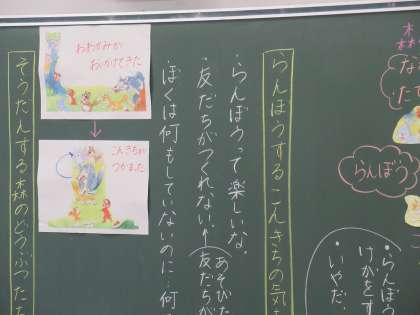 森
な
たて
らんぼう
・らんぼう
けがをす
いやだ。
らんぼうするこんきちの気
・らんぼうって楽しいな。
あそびた
・友だちがつくれない。←友だちが
ぼくは何もしていないのに…何
おおかみが
おいかけてきた
こんきちが
つかまった
そうだんする森のどうぶつたち